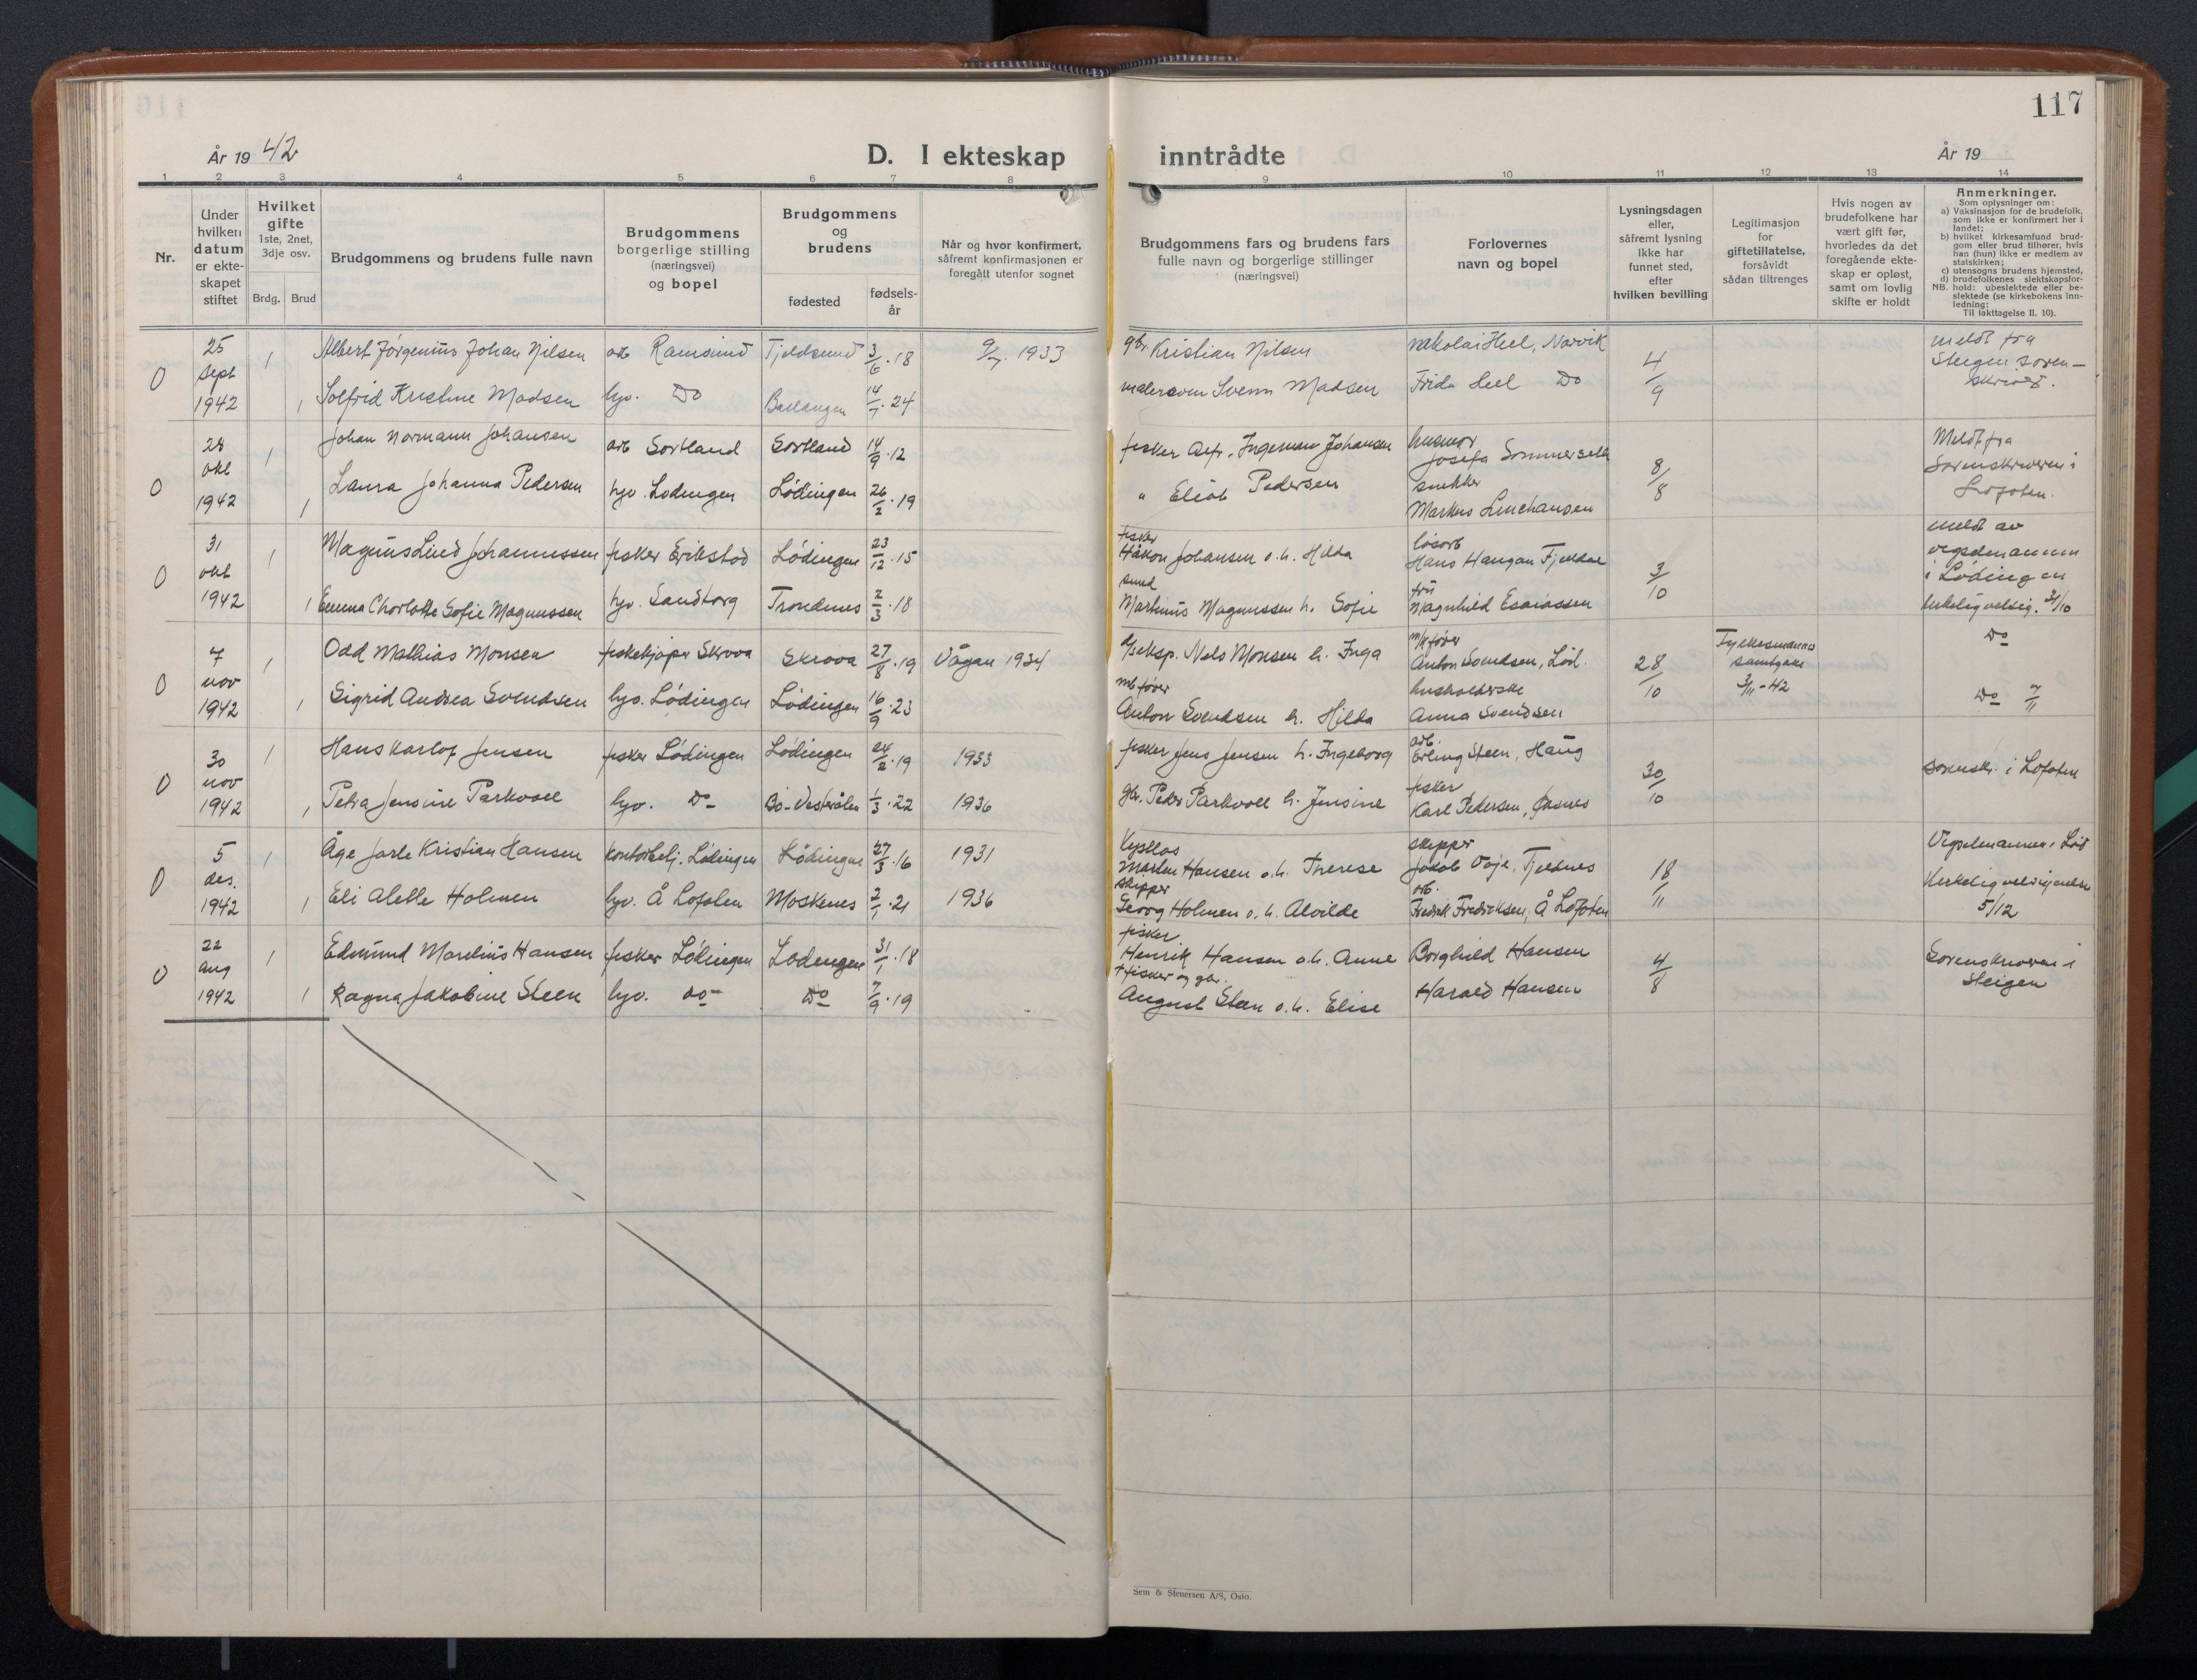 117
År 19 42
D. I ekteskap inntrådte
År 19
1 2 3 4 5 6 7 8 9 10 11 12 13 14
Nr.
Under
hvilken
datum
er ekte-
skapet
stiftet
Hvilket
gifte
1ste, 2net,
3dje osv.
Brdg. Brud
Brudgommens og brudens fulle navn
Brudgommens
borgerlige stilling
(næringsvei)
og bopel
Brudgommens
og
brudens
fødested
fødsels-
år
Når og hvor konfirmert,
såfremt konfirmasjonen er
foregått utenfor sognet
Brudgommens fars og brudens fars
fulle navn og borgerlige stillinger
(næringsvei)
Forlovernes
navn og bopel
Lysningsdagen
eller,
såfremt lysning
ikke har
funnet sted,
efter
hvilken bevilling
Legitimasjon
for
giftetillatelse,
forsåvidt
sådan tiltrenges
Hvis nogen av
brudefolkene har
vært gift før,
hvorledes da det
foregående ekte-
skap er opløst,
samt om lovlig
skifte er holdt
Anmerkninger.
Som oplysninger om:
a) Vaksinasjon for de brudefolk,
som ikke er konfirmert her i
landet;
b) hvilket kirkesamfund brud-
gom eller brud tilhører, hvis
han (hun) ikke er medlem av
statskirken;
c) utensogns brudens hjemsted,
d) brudefolkenes slektskapsfor-
NB. hold: ubeslektede eller be-
slektede (se kirkebokens inn-
ledning:
Til iakttagelse II. 10).
0 25 sept 1942
1 Albert Jørgenius Johan Nilsen arb Ramsund Tjeldsund 3/6.18 9/7. 1933 gbr Kristian Nilsen Nikolai Heel, Narvik 4/9 meldt fra
Steigen soren-
skriveri.
1 Solfrid Kristine Madsen hjv. Do Ballangen 14/7.24 malersven Svenn Madsen Frida Heel Do
0 28 okt 1942
1 Johan Normann Johansen arb Sortland Sortland 14/9.12 fisker Alfr. Ingeman Johansen husmor Josefa Sommerseth 8/8 Meldt fra
Sorenskriveren i
Lofoten.
1 Laura Johanna Pedersen hjv. Lødingen Lødingen 26/2.19 " Eliot Pedersen snekker
Markus
0 31 okt 1942
1 Magnus Lind Johannessen fisker Erikstad Lødingen 23/12.15 fisker
Håkon Johansen o.h. Hilda løsarb
Hans Haugan Fjeldal 3/10 meldt av
vigselmannen
i Lødingen
kirkelig velsig. 31/10
1 Emma Charlotte Sofie Magnussen hjv. Sandtorg Trondenes 2/3.18 smed
Martinus Magnussen h. Sofie fru
Magnhild Esaiassen
0 7 nov 1942
1 Odd Mathias Monsen fiskekjøper Skrova Skrova 27/8.19 Vågan 1934 d/seksp. Nels Monsen h. Inga m/k fører
Anton Svendsen, Lød. 28/10 Fylkesmannens
samtykke
3/11-42 Do
1 Sigrid Andrea Svendsen hjv. Lødingen Lødingen 16/9.23 mb fører
Anton Svendsen h. Hilda husholderske
Anna Svendsen Do 7/11
0 30 nov 1942
1 Hans Karlof Jensen fisker Lødingen Lødingen 24/2.19 1933 fisker Jens Jensen h. Ingeborg arb.
Erling Steen, Haug 30/10 Sorenskr. i Lofoten
1 Petra Jensine Parkvoll hjv. Do Bø-Vesterålen 1/3.22 1936 gbr. Peder Parkvoll h. Jensine fisker
Karl Pedersen, Øksnes
0 5 des. 1942
1 Åge Jarle Kristian Hansen kontorbetj. Lødingen Lødingen 27/3.16 1931 kystlos
Martin Hansen o.h. Therese skipper
Jakob Voje, Tjeldnes 18/11 Vigselmannen i Lød
Kirkelig velsignelse
5/12
1 Eli Alette Holmen hjv. Å Lofoten Moskenes 2/1.21 1936 skipper
Georg Holmen o.h. Alvilde arb.
Fredrik Fredriksen, Å Lofoten
0 22 aug 1942
1 Edmund Marelius Hansen fisker Lødingen Lødingen 31/1.18 fisker
Henrik Hansen o.h. Anne Borghild Hansen 4/8 Sorenskriveren i
Steigen
1 Ragna Jakobine Steen hjv. do Do 7/9.19 fisker og gbr.
August Steen o.h. Elise Harald Hansen
Sem & Stenersen A/S, Oslo.